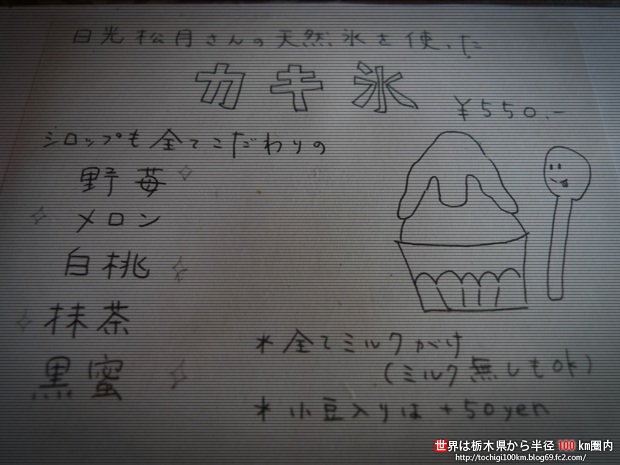 日光松月さんの天然氷を使った
カキ氷
¥550.-
シロップも全てこだわりの
野苺
メロン
白桃
抹茶
黒蜜
*全てミルクがけ
(ミルク無しもok)
*小豆入りは+50yen
世界は栃木県から半径100km圏内
http://tochigi100km.blog69.fc2.com/